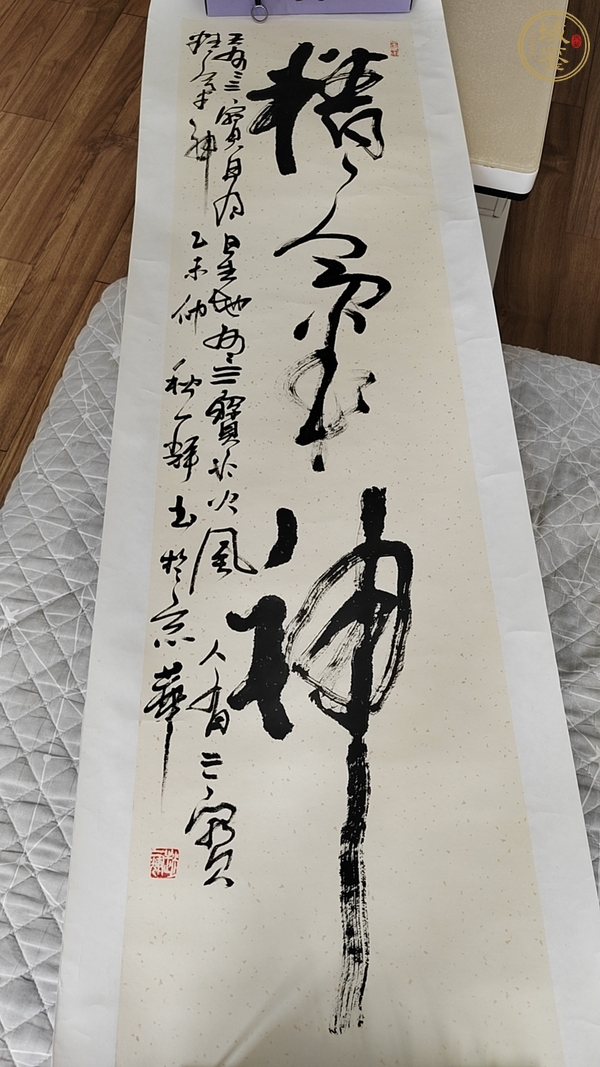 精气神
天有三宝日月星地有三宝水火风人有三宝
精气神 乙未仲秋一辉书于京华